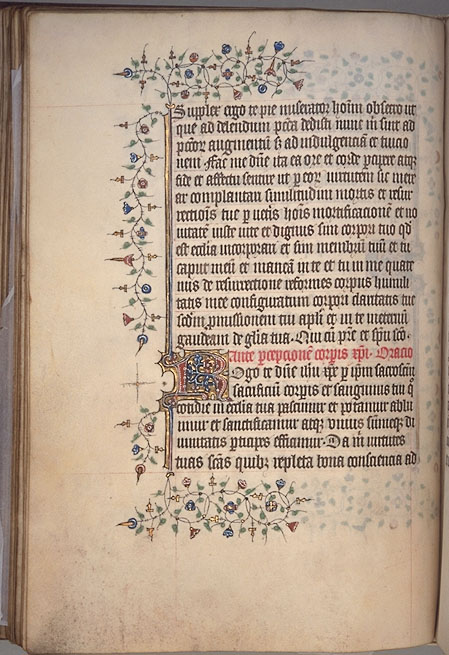 Supplex ergo te pie miserator hoim obsecro ut
que ad delendum pctā dedisti nunc m̄ sint ad
pctōr augmentum s; ad indulgencia et tuicio
nem Fac me dn̄e ita ea ore et corde pcipere atq;
fide et affectu sentire ut p eor virtutem sic mere
ar complantari similitudini mortis et resur
rectionis tue p veris hois mortificacionē et no
uitatē iuste vite et dignus sim corpori tuo qd
est ecclia incorporari et sim membrū tuū et tu
caput meū et maneā in te et tu in me quate
nus de resurrectione reformes corpus humili
tatis mee configuratum corpori claritatis tue
scdm pmissionem tui apli; et in te metenū
gaudeam de glia tua. Qui cū pre et spū sco.
Ante pcepcionē corpis xpi. Oracio
Rogo te dn̄e ihu xpe p ipm sacroscm
sacrificiū corpis et sanguinis tui q
cotidie in ecclia tua pascimur et potamur ablu
imur et sanctificamur atq; unius summeq; di
uinitatis pticipes efficimur. Da m̄ uirtutes
tuas scas quib; repleta bona consciencia ad